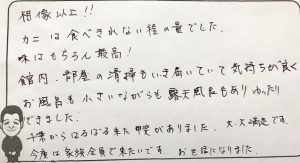 想像以上!!
カニは食べきれない程の量でした。
味はもちろん最高!
館内、部屋の清掃もいき届いていて気持ちが良く
お風呂も小さいながらも露天風呂もありゆったり
できました。
千葉からはるばる来た甲斐がありました。大大満足です。
今度は家族全員で来たいです。 お世話になりました。